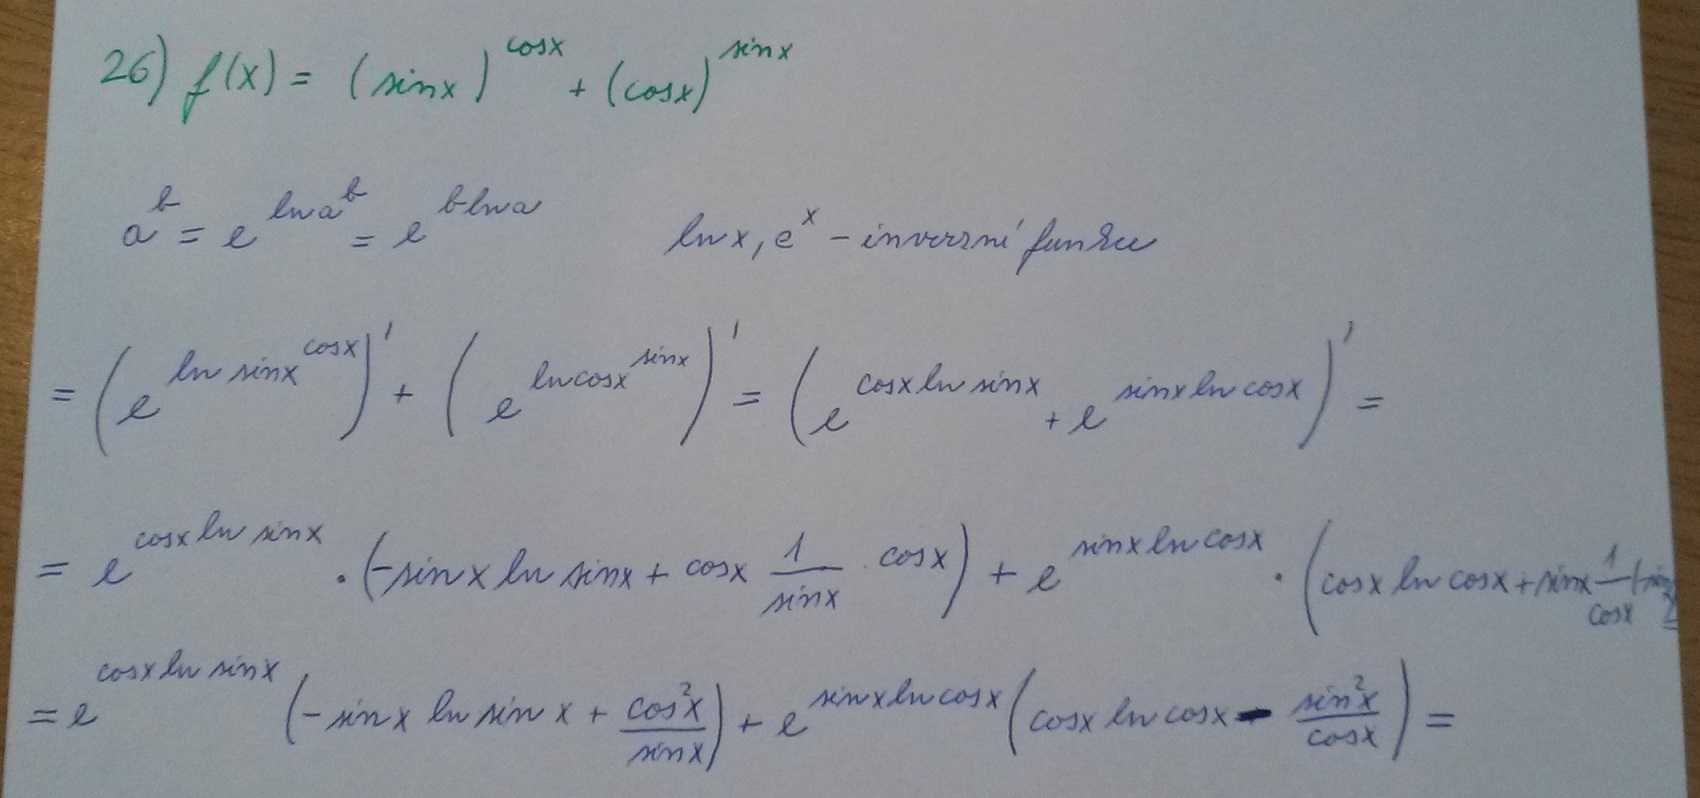 26) f(x) = (sinx)^cosx + (cosx)^sinx
a^b = e^(ln a^b) = e^(b ln a) ln x, e^x - inverzní funkce
= (e^(ln sinx^cosx))' + (e^(ln cosx^sinx))' = (e^(cosx ln sinx) + e^(sinx ln cosx))' =
= e^(cosx ln sinx) · (-sinx ln sinx + cosx 1/sinx · cosx) + e^(sinx ln cosx) · (cosx ln cosx + sinx 1/cosx (-sin
= e^(cosx ln sinx) (-sinx ln sinx + cos²x/sinx) + e^(sinx ln cosx) (cosx ln cosx - sin²x/cosx) =